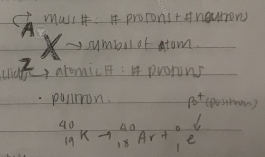 A mass # : # protons + # neutrons
X → symbol of atom.
Z → atomic # : # protons
· positron.
β⁺ (positron)
⁴⁰₁₉K → ⁴⁰₁₈Ar + ⁰₁e